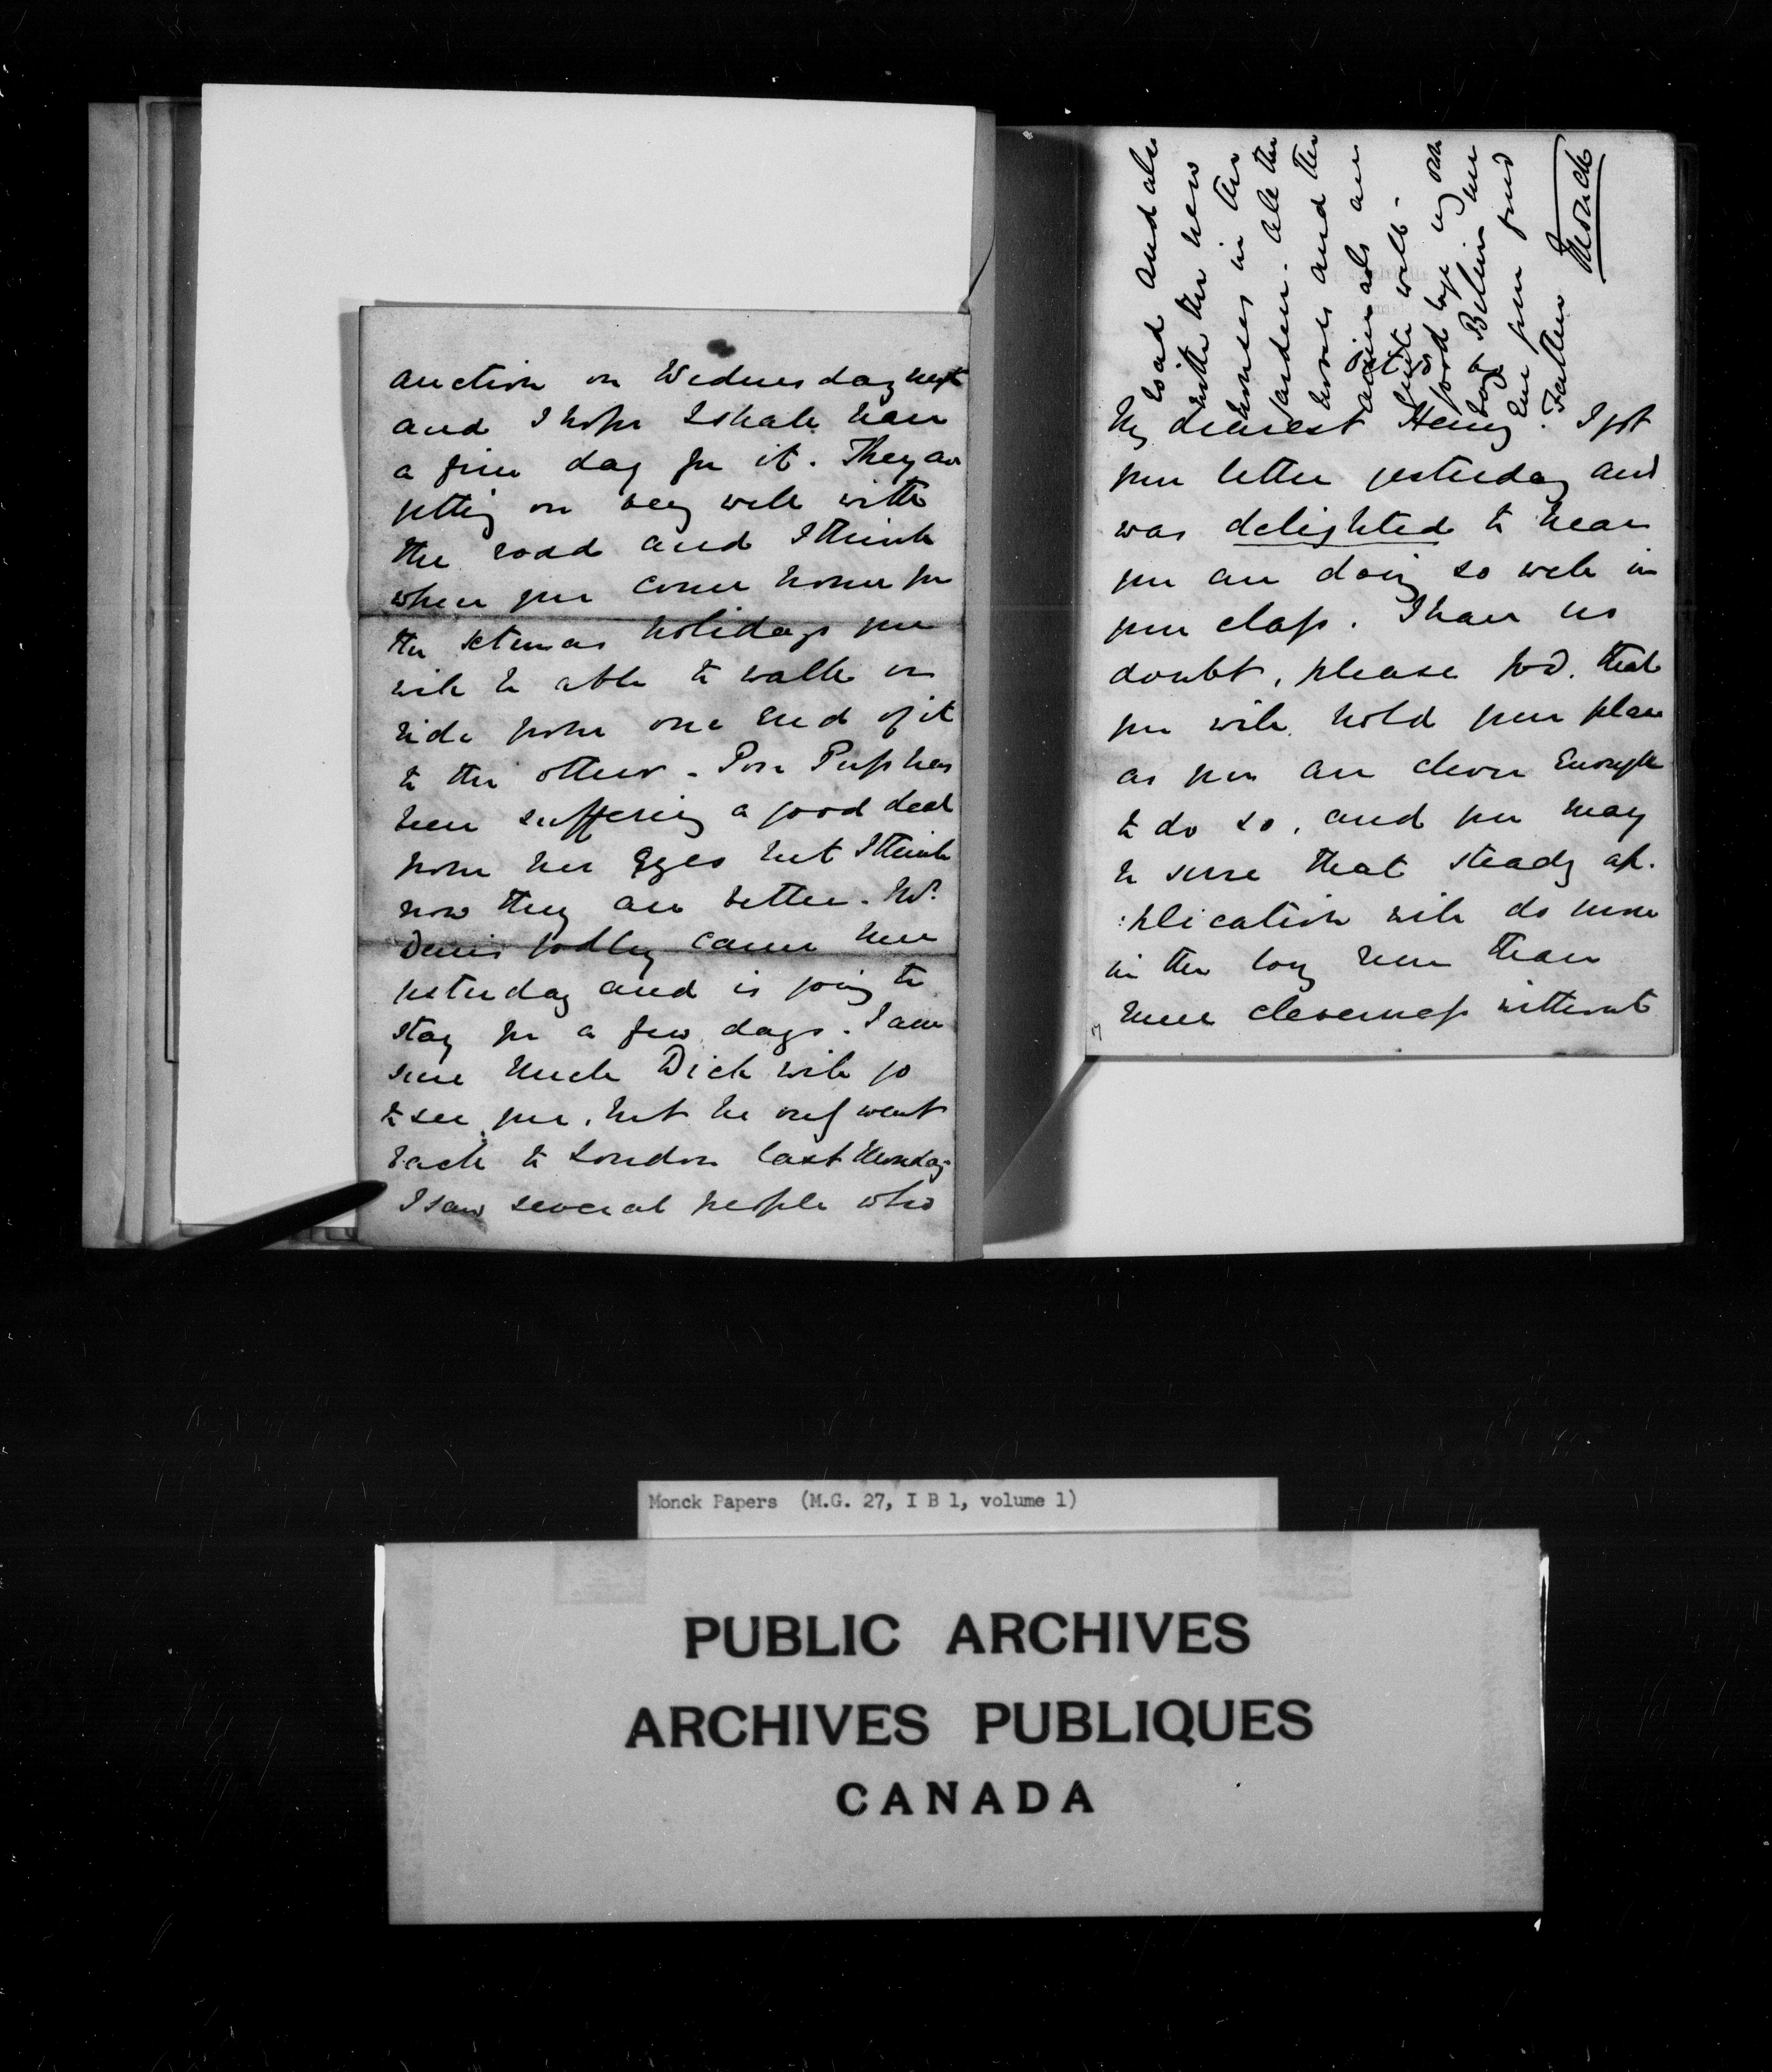 auction on Wednesday next
and I hope I shall have
a fine day for it. They are
getting on very well with
the road and I think
when you come home for
the Xtmas holidays you
will be able to walk or
ride from one end of it
to the other - Poor Pup has
been suffering a good deal
from her Eyes but I think
now they are better. Mr.
Denis Godley came here
yesterday and is going to
stay for a few days. I am
sure Uncle Dick will go
to see you, but he only went
back to London last Monday
I saw several people who
road and also
with the new
houses in the
garden. All the
horses and the
animals are
quite well -
good bye my own
boy Believe me
Ever your fond
Father Monck
My dearest Henry. I got
your letter yesterday and
was delighted to hear
you are doing so well in
your class. I have no
doubt, please God, that
you will hold your place
as you are clever Enough
to do so, and you may
be sure that steady ap-
:plication will do more
in the long run than
mere cleverness without
Monck Papers (M.G. 27, I B 1, volume 1)
PUBLIC ARCHIVES
ARCHIVES PUBLIQUES
CANADA